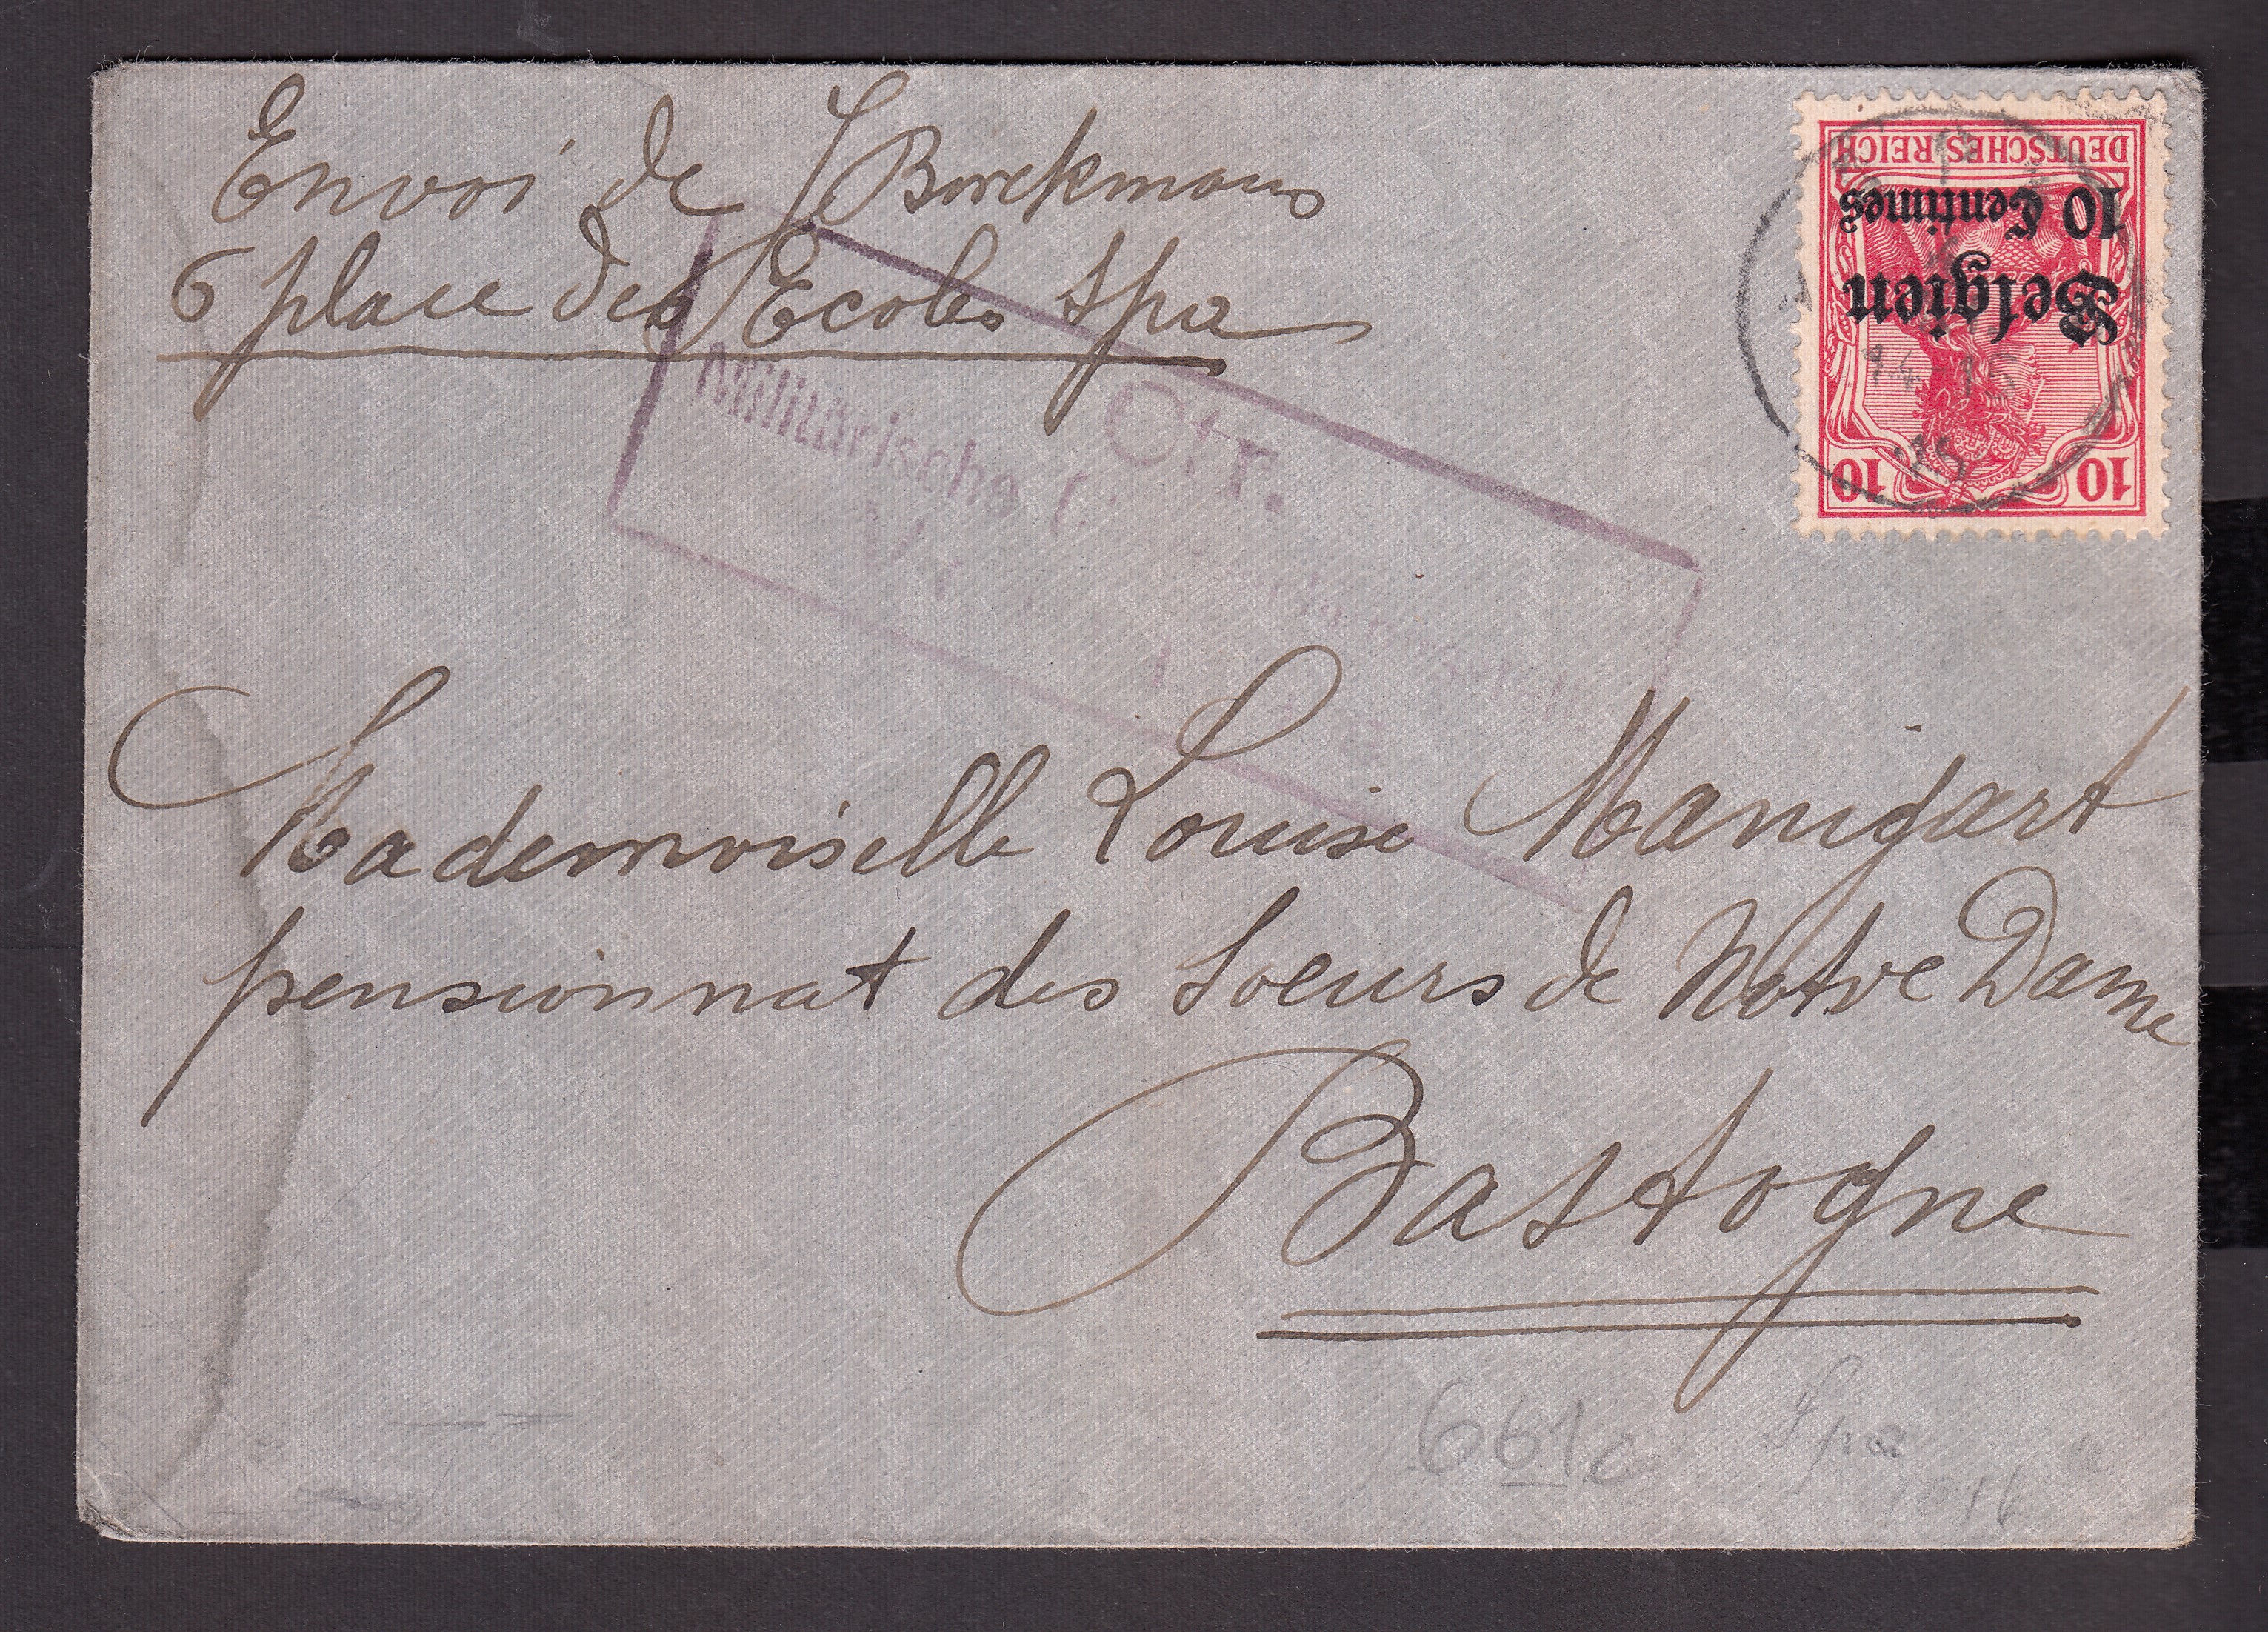 Envoi de J Borckmans
6 place des Ecoles Spa
DEUTSCHES REICH
10 Centimes
Belgien
10 10
Ctr.
Militärische
Mademoiselle Louise Manigart
pensionnat des Soeurs de Notre Dame
Bastogne
661c Spa